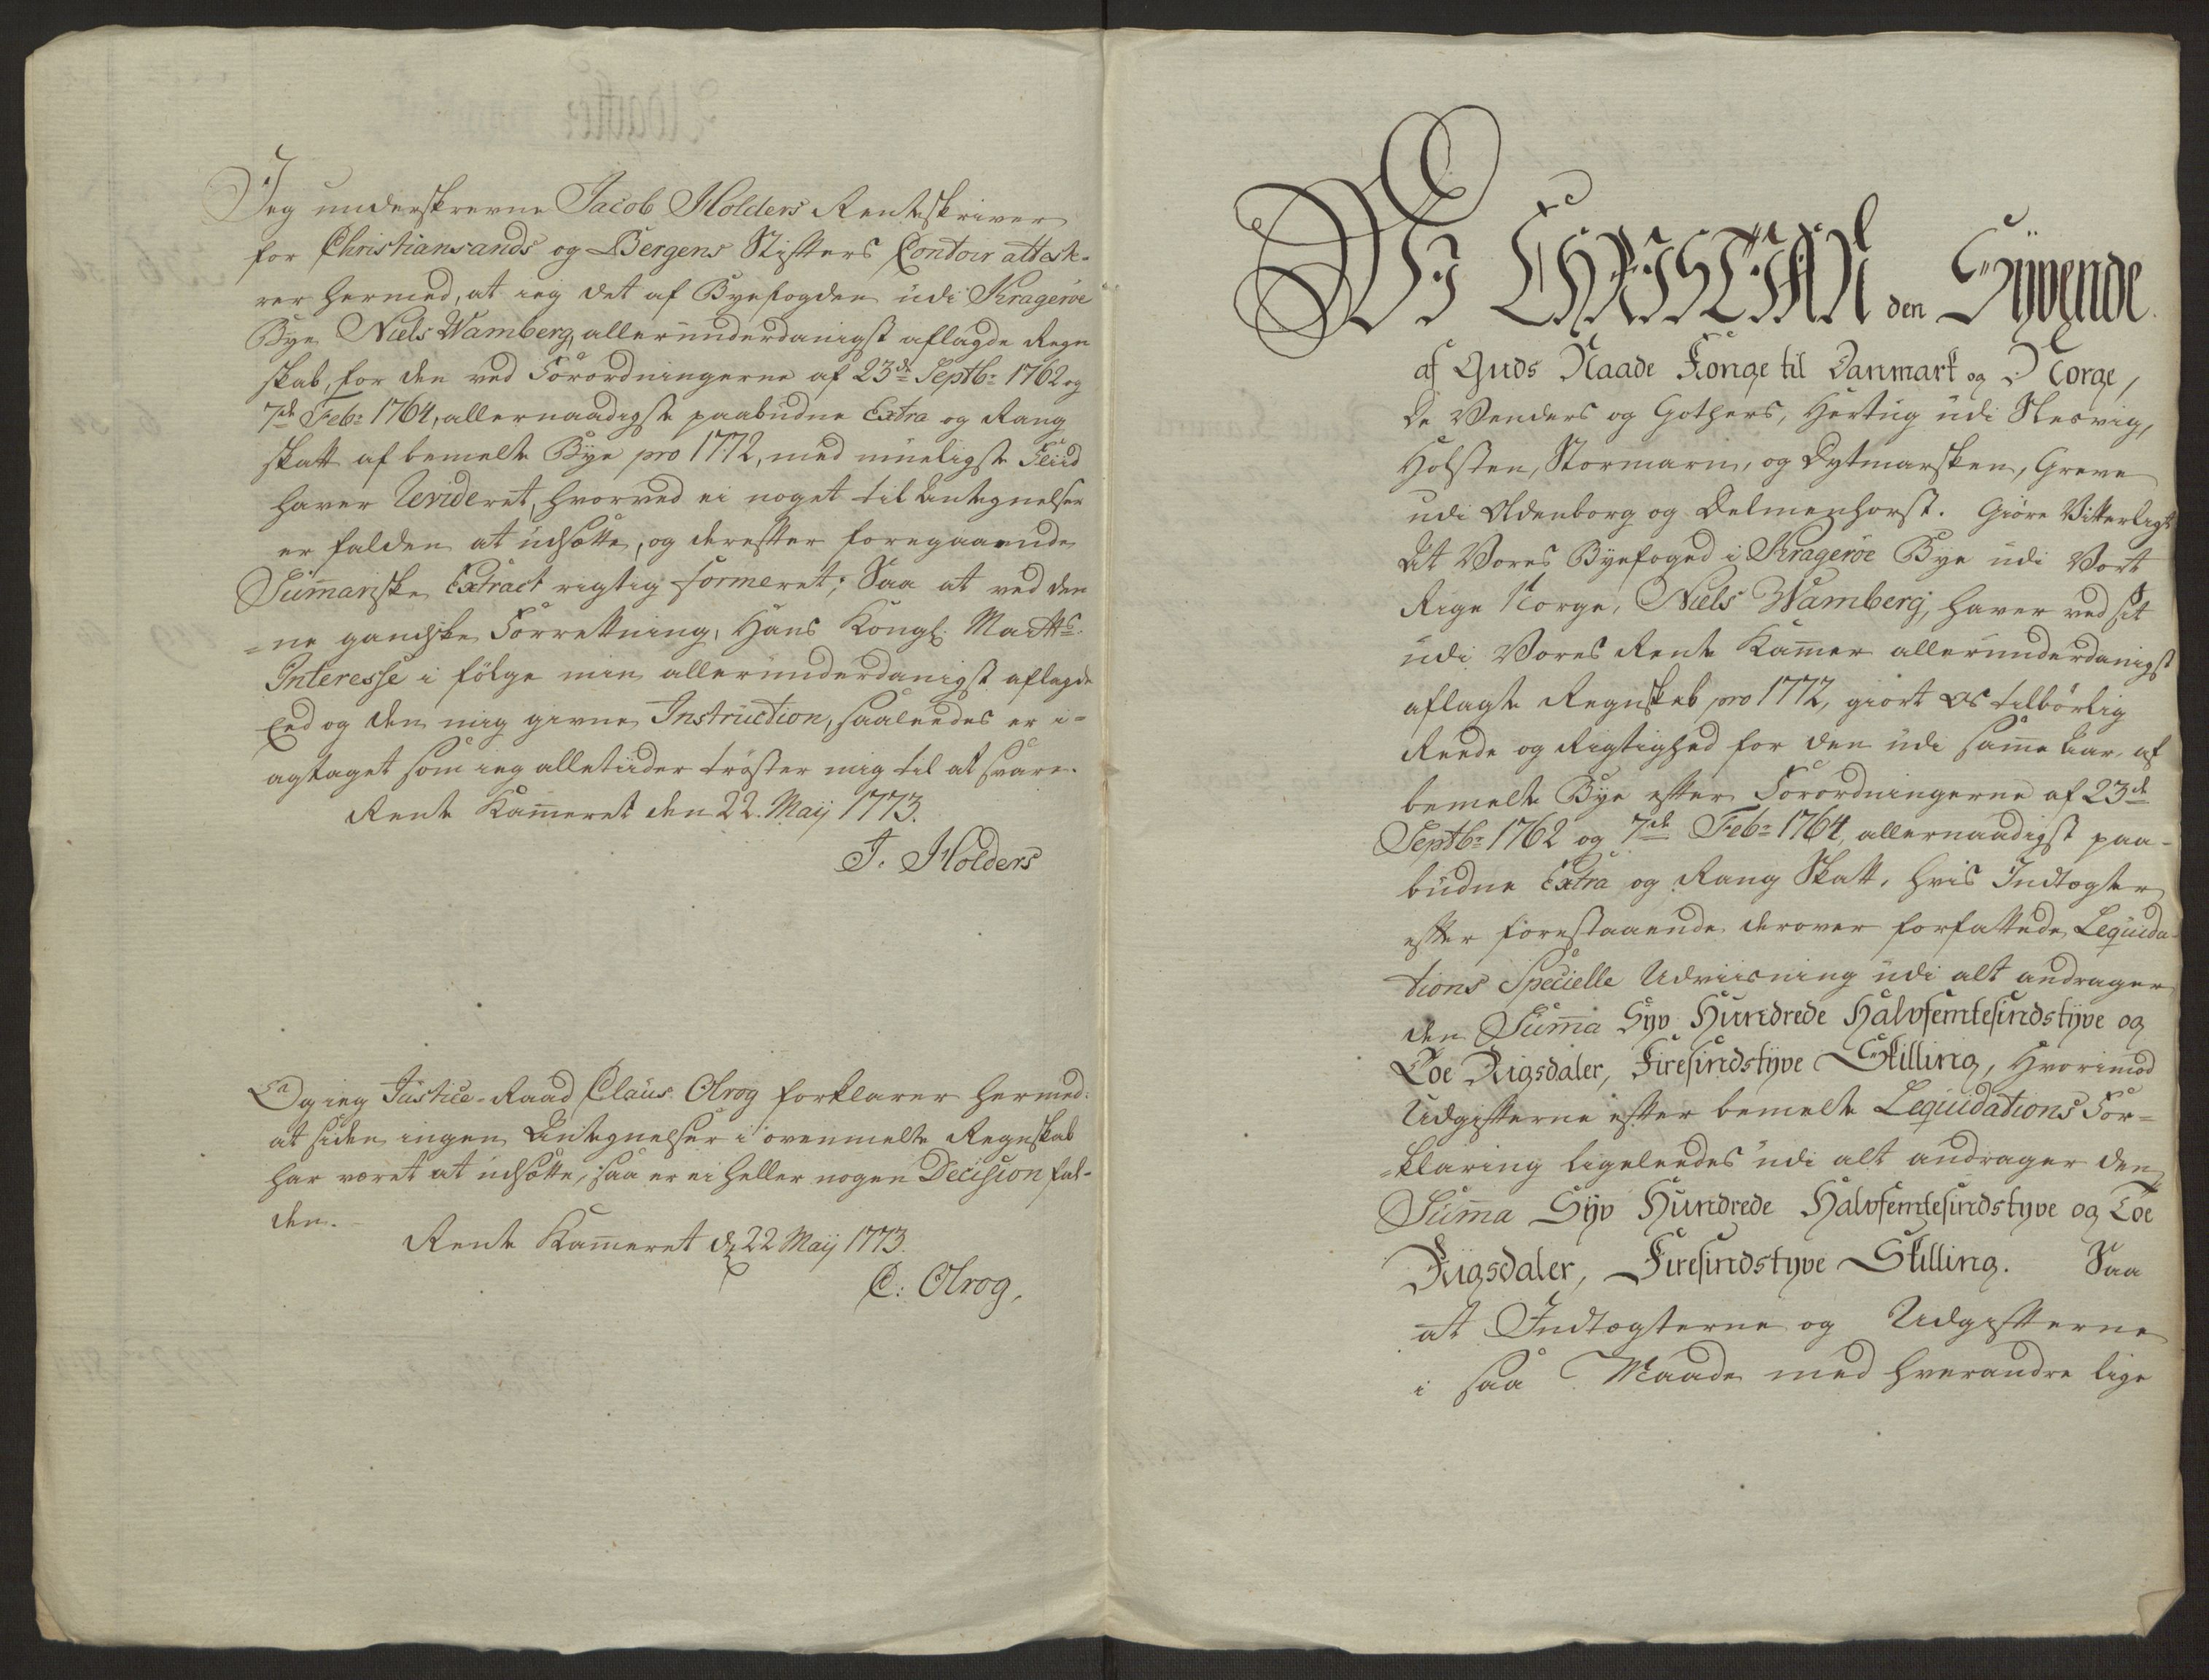 Jeg underskrevne Jacob Holders Renteskriver
for Christiansands og Bergens Stifters Contoir atteste-
rer hermed, at ieg det af Byefogden udi Krageröe
Bye Niels Wamberg, allerunderdanigst aflagde Regn
skab, for den ved Forordningerne af 23de Septbr 1762 og
7de Febr 1764, allernaadigste paabudne Extra og Rang
skatt af bemelte Bye pro 1772, med mueligste Fliid
haver Revideret, hvorved ei noget til Antegnelser
er falden at udsætte, og derefter foregaaende
Summariske Extract rigtig formeret; Saa at ved den
=ne gandske Forrettning, Hans Kongl. Maytts
Interesse i fölge min allerunderdanigst aflagde
Eed og den mig givne Instruction, saaleedes er i-
agtaget som ieg alletiider tröster mig til at svare.
Rente Kammeret den 22. Maij 1773.
J. Holders
Og ieg Justice-Raad Claus Olrog forklarer hermed:
at siden ingen Antegnelser i ovenmelte Regnskab
har været at udsætte, saa er ei heller nogen Decision fal-
den.
Rente Kammeret d. 22 Maij 1773.
C. Olrog.
WI CHRISTIAN den Syvende.
af Guds Naade Konge til Danmark og Norge,
De Venders og Gothers, Hertug udi Slesvig,
Holsten, Stormarn, og Dytmarsken, Greve
udi Oldenborg og Delmenhorst. Giöre Vitterligt
At Vores Byefoged i Krageröe Bye udi Vort
Rige Norge, Niels Wamberg, haver ved sit
udi Vores Rente Kammer allerunderdanigst
aflagte Regnskab pro 1772, giort Os tilbörlig
Reede og Rigtighed for den udi samme Aar, af
bemelte Bye efter Forordningerne af 23de
Septbr 1762 og 7de Febr 1764, allernaadigst paa-
budne Extra og Rang Skatt, hvis Indtægter
efter forestaaende derover forfattede Liquida-
tions Specielle Udviisning udi alt andrager
den Summa Syv Hundrede Halvfemtesindstyve og
Toe Rigsdaler, Firesindstyve Skilling, Hvorimod
Udgifterne efter bemelte Liquidations For-
=klaring ligeleedes udi alt andrager den
Summa Syv Hundrede Halvfemtesindstyve og Toe
Rigsdaler, Firesindstyve Skilling. Saa
at Indtægterne og Udgifterne
i saa Maade med hverandre lige